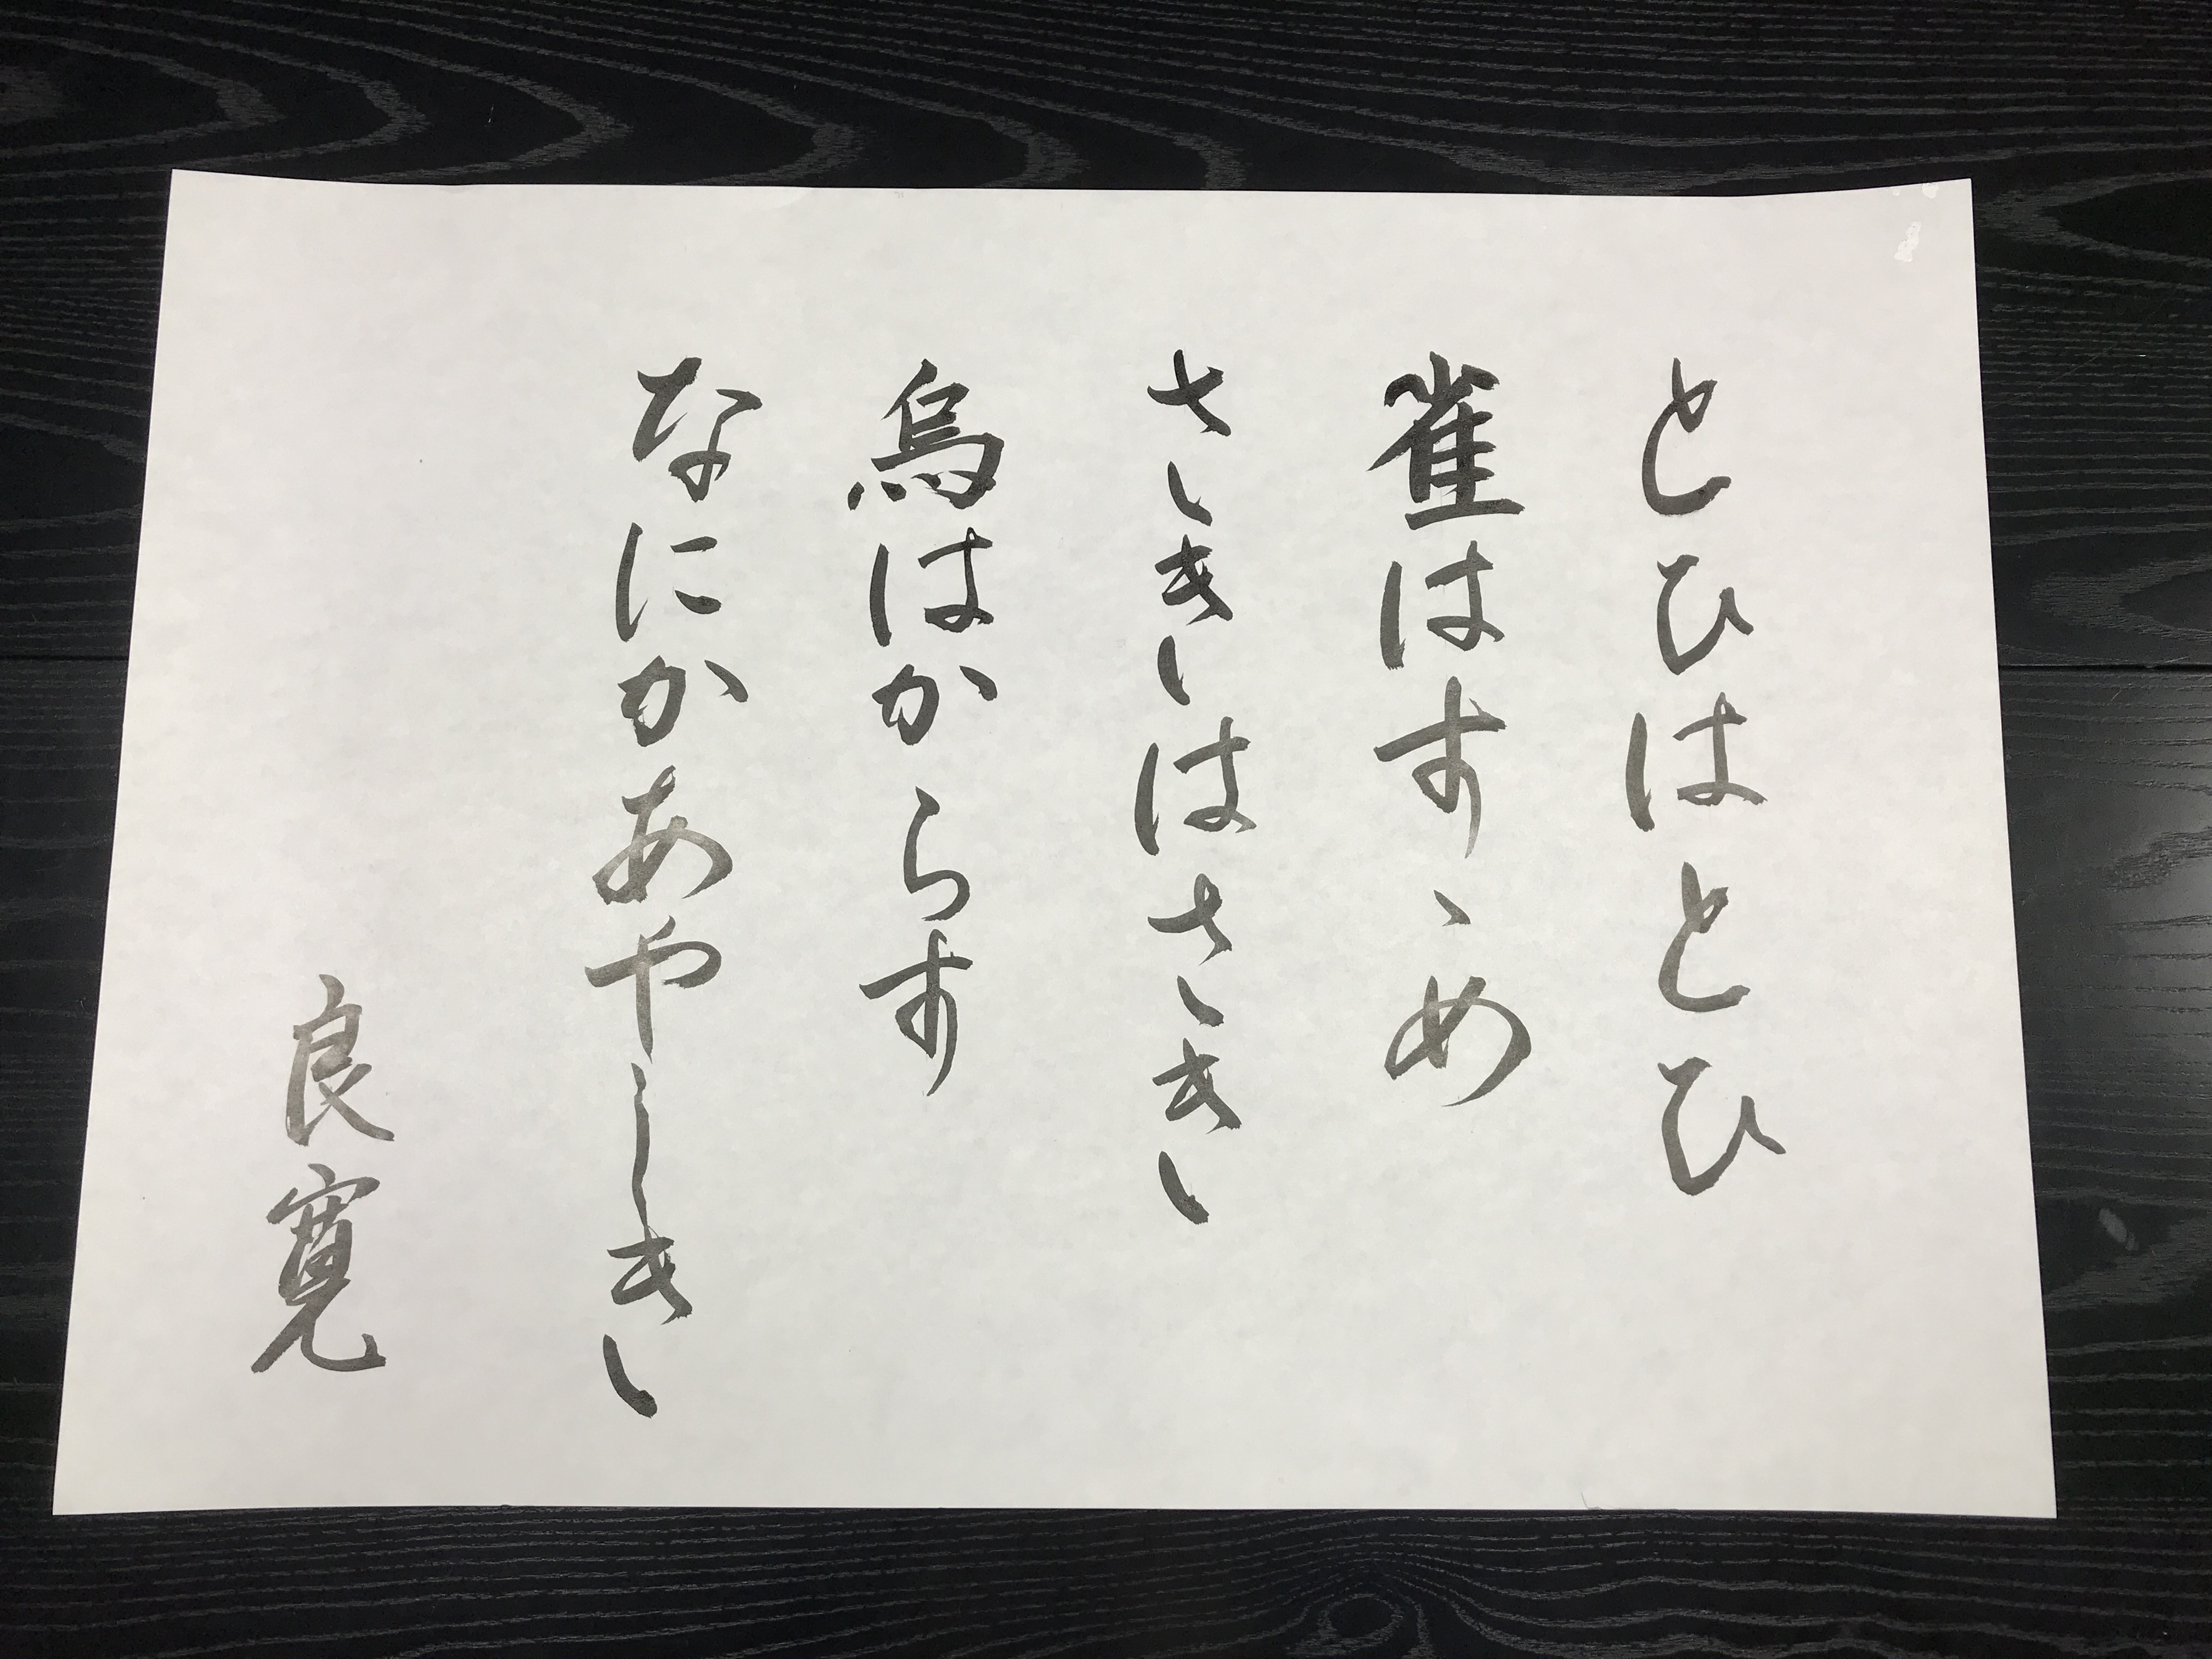 とひはとひ
雀はすゝめ
さきはさき
烏はからす
なにかあやしき
良寛